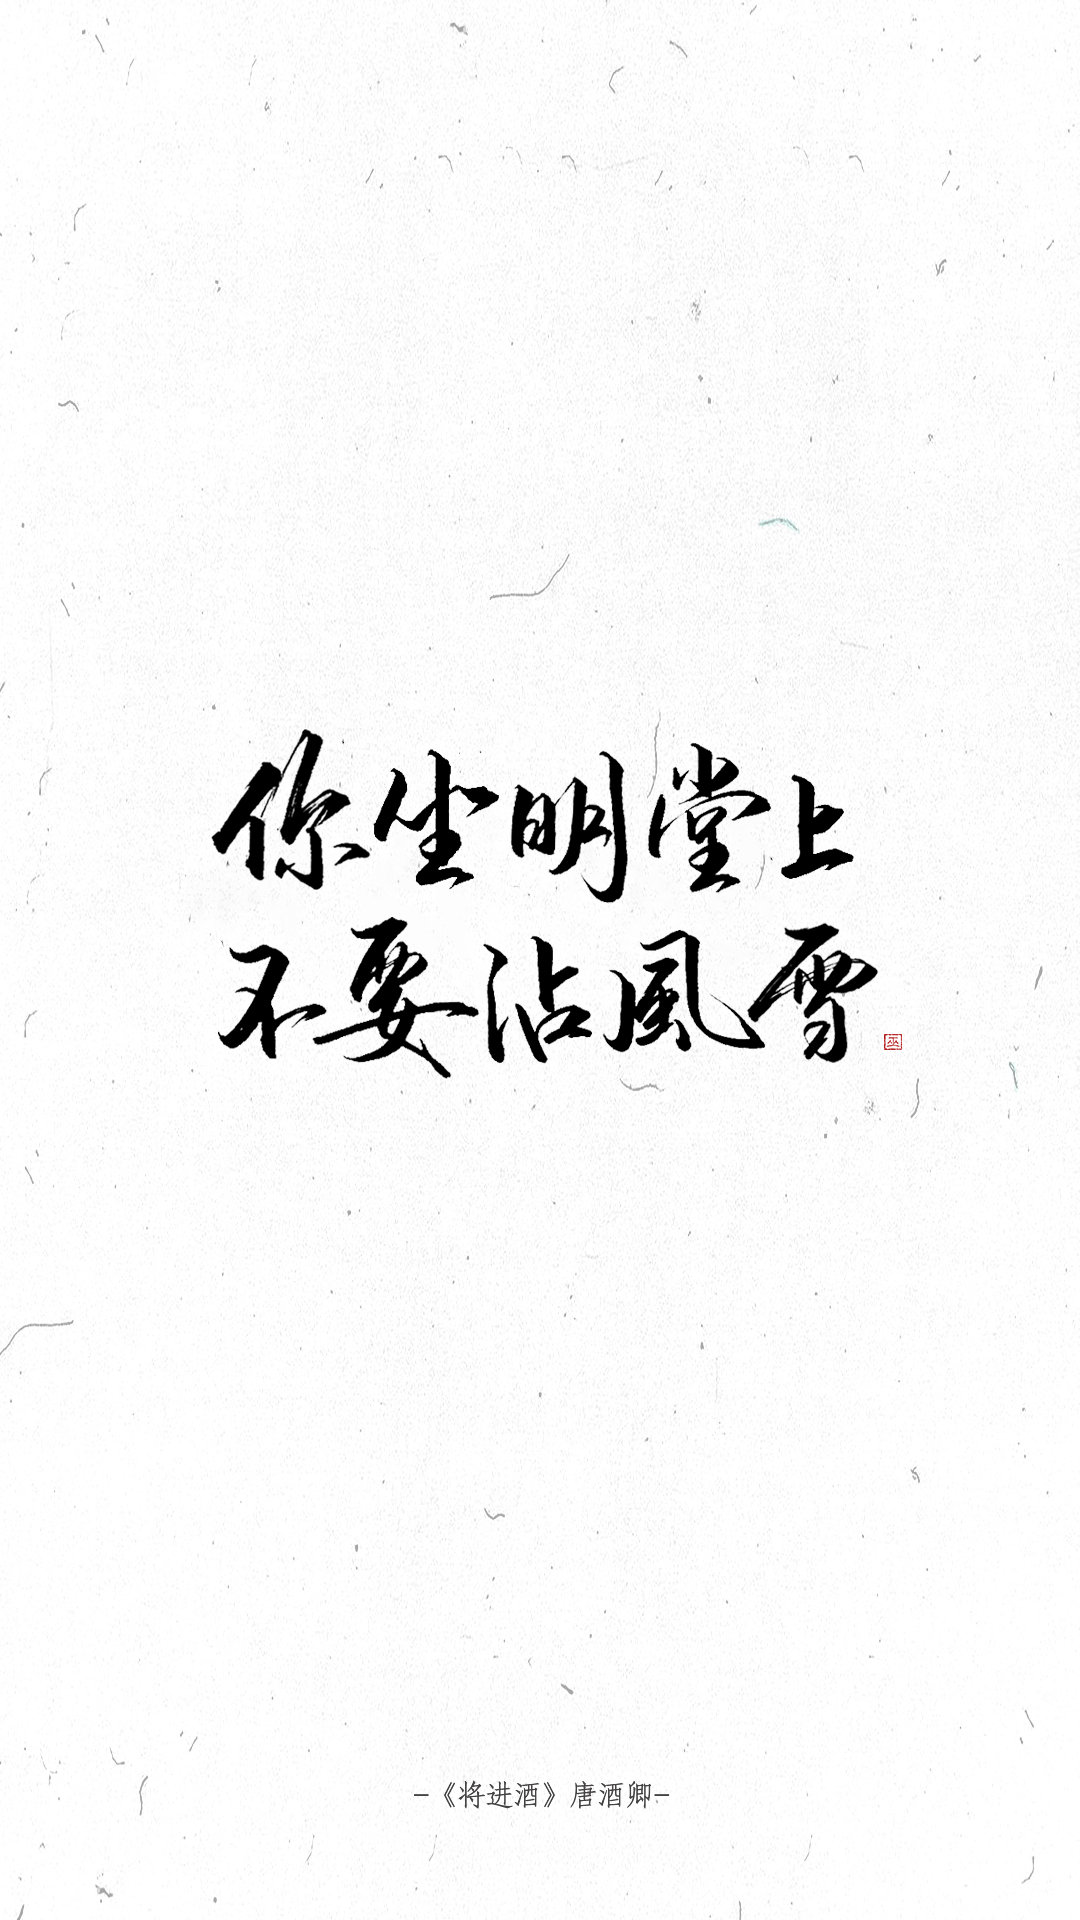 你坐明堂上
不要沾風雪
巫
-《将进酒》唐酒卿-